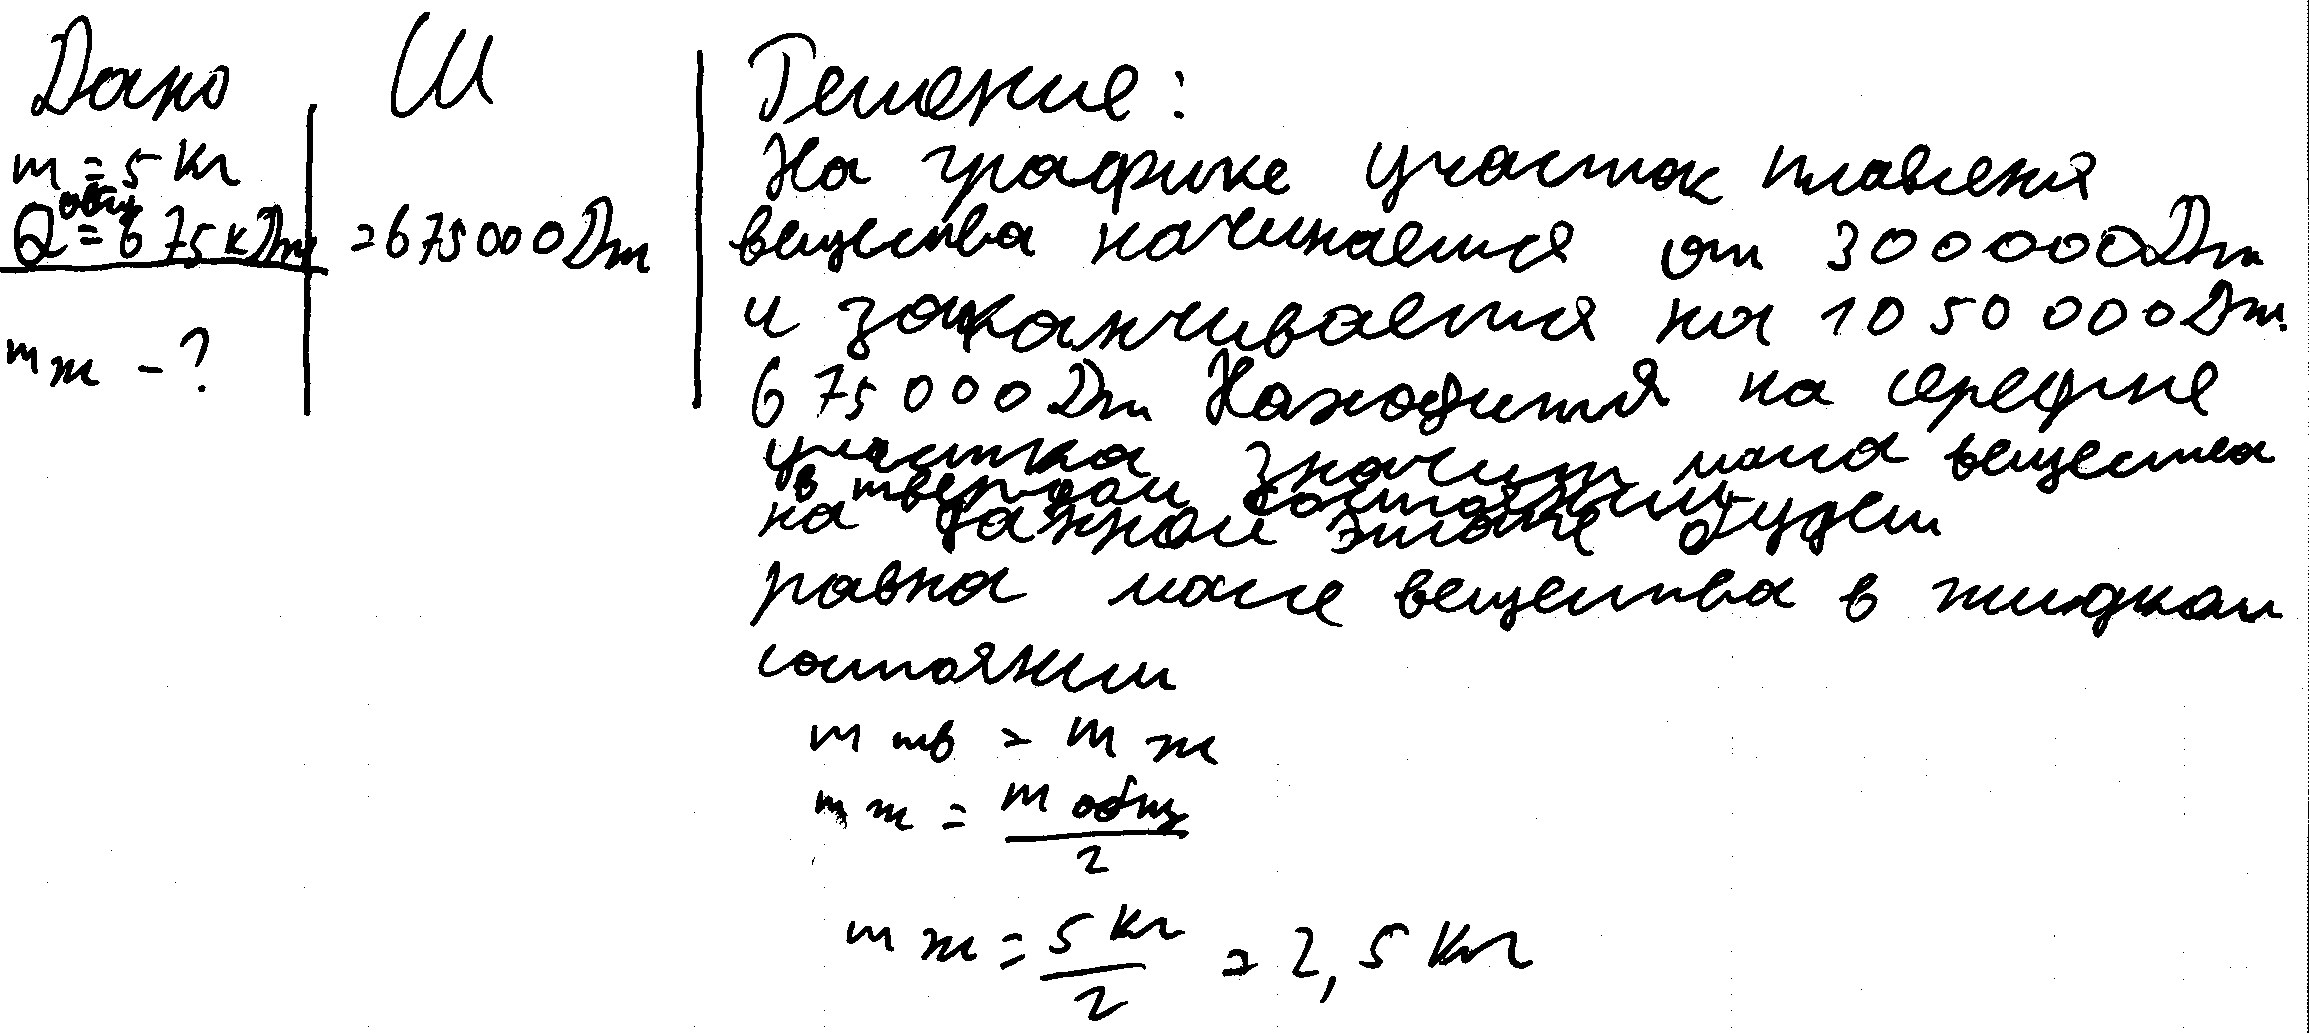 Дано СИ
m = 5 кг
Qобщ = 675 кДж = 675 000 Дж
mж - ?
Решение:
На графике участок плавленя
вещества начинается от 300000 Дж
и заканчивается на 1050 000 Дж.
675 000 Дж Находится на середине
участка значит масса вещества
в твердом состоянии
на данном этапе будет
равна массе вещества в жидком
состоянии
m тв = m ж
m ж = m общ / 2
m ж = 5 кг / 2 = 2,5 кг